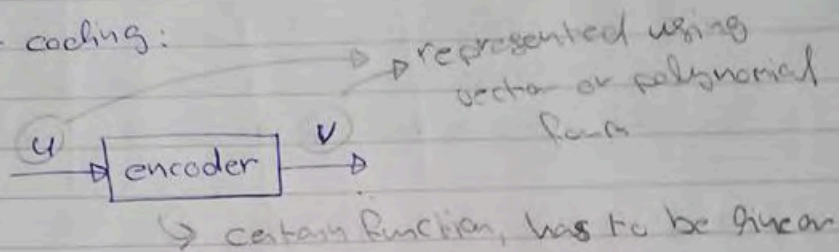 coding:
represented using
vector or polynomial
form
u
encoder
v
certain function, has to be given